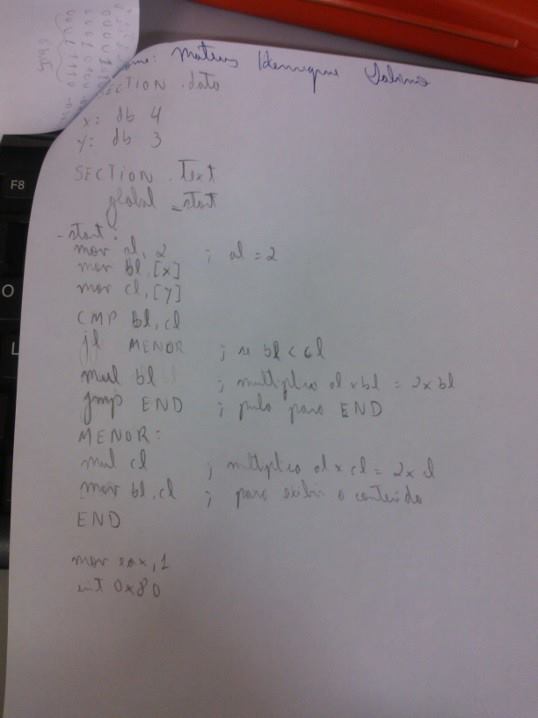 nome: Mateus Henrique
SECTION .data
x: db 4
y: db 3
SECTION .Text
global _start
_start:
mov al, 2 ; al = 2
mov bl, [x]
mov cl, [y]
CMP bl, cl
jl MENOR ; se bl < cl
mul bl ; multiplica al x bl = 2 x bl
jmp END ; pula para END
MENOR:
mul cl ; multiplica al x cl = 2 x cl
mov bl, cl ; para exibir o conteúdo
END
mov eax, 1
int 0x80
F8
O
L